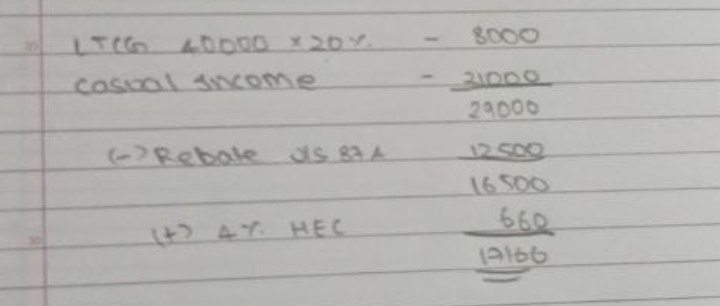 LTCG 40000 x 20% - 8000
casual Income - 21000
29000
(-) Rebate u/s 87A 12500
16500
(+) 4% HEC 660
17166